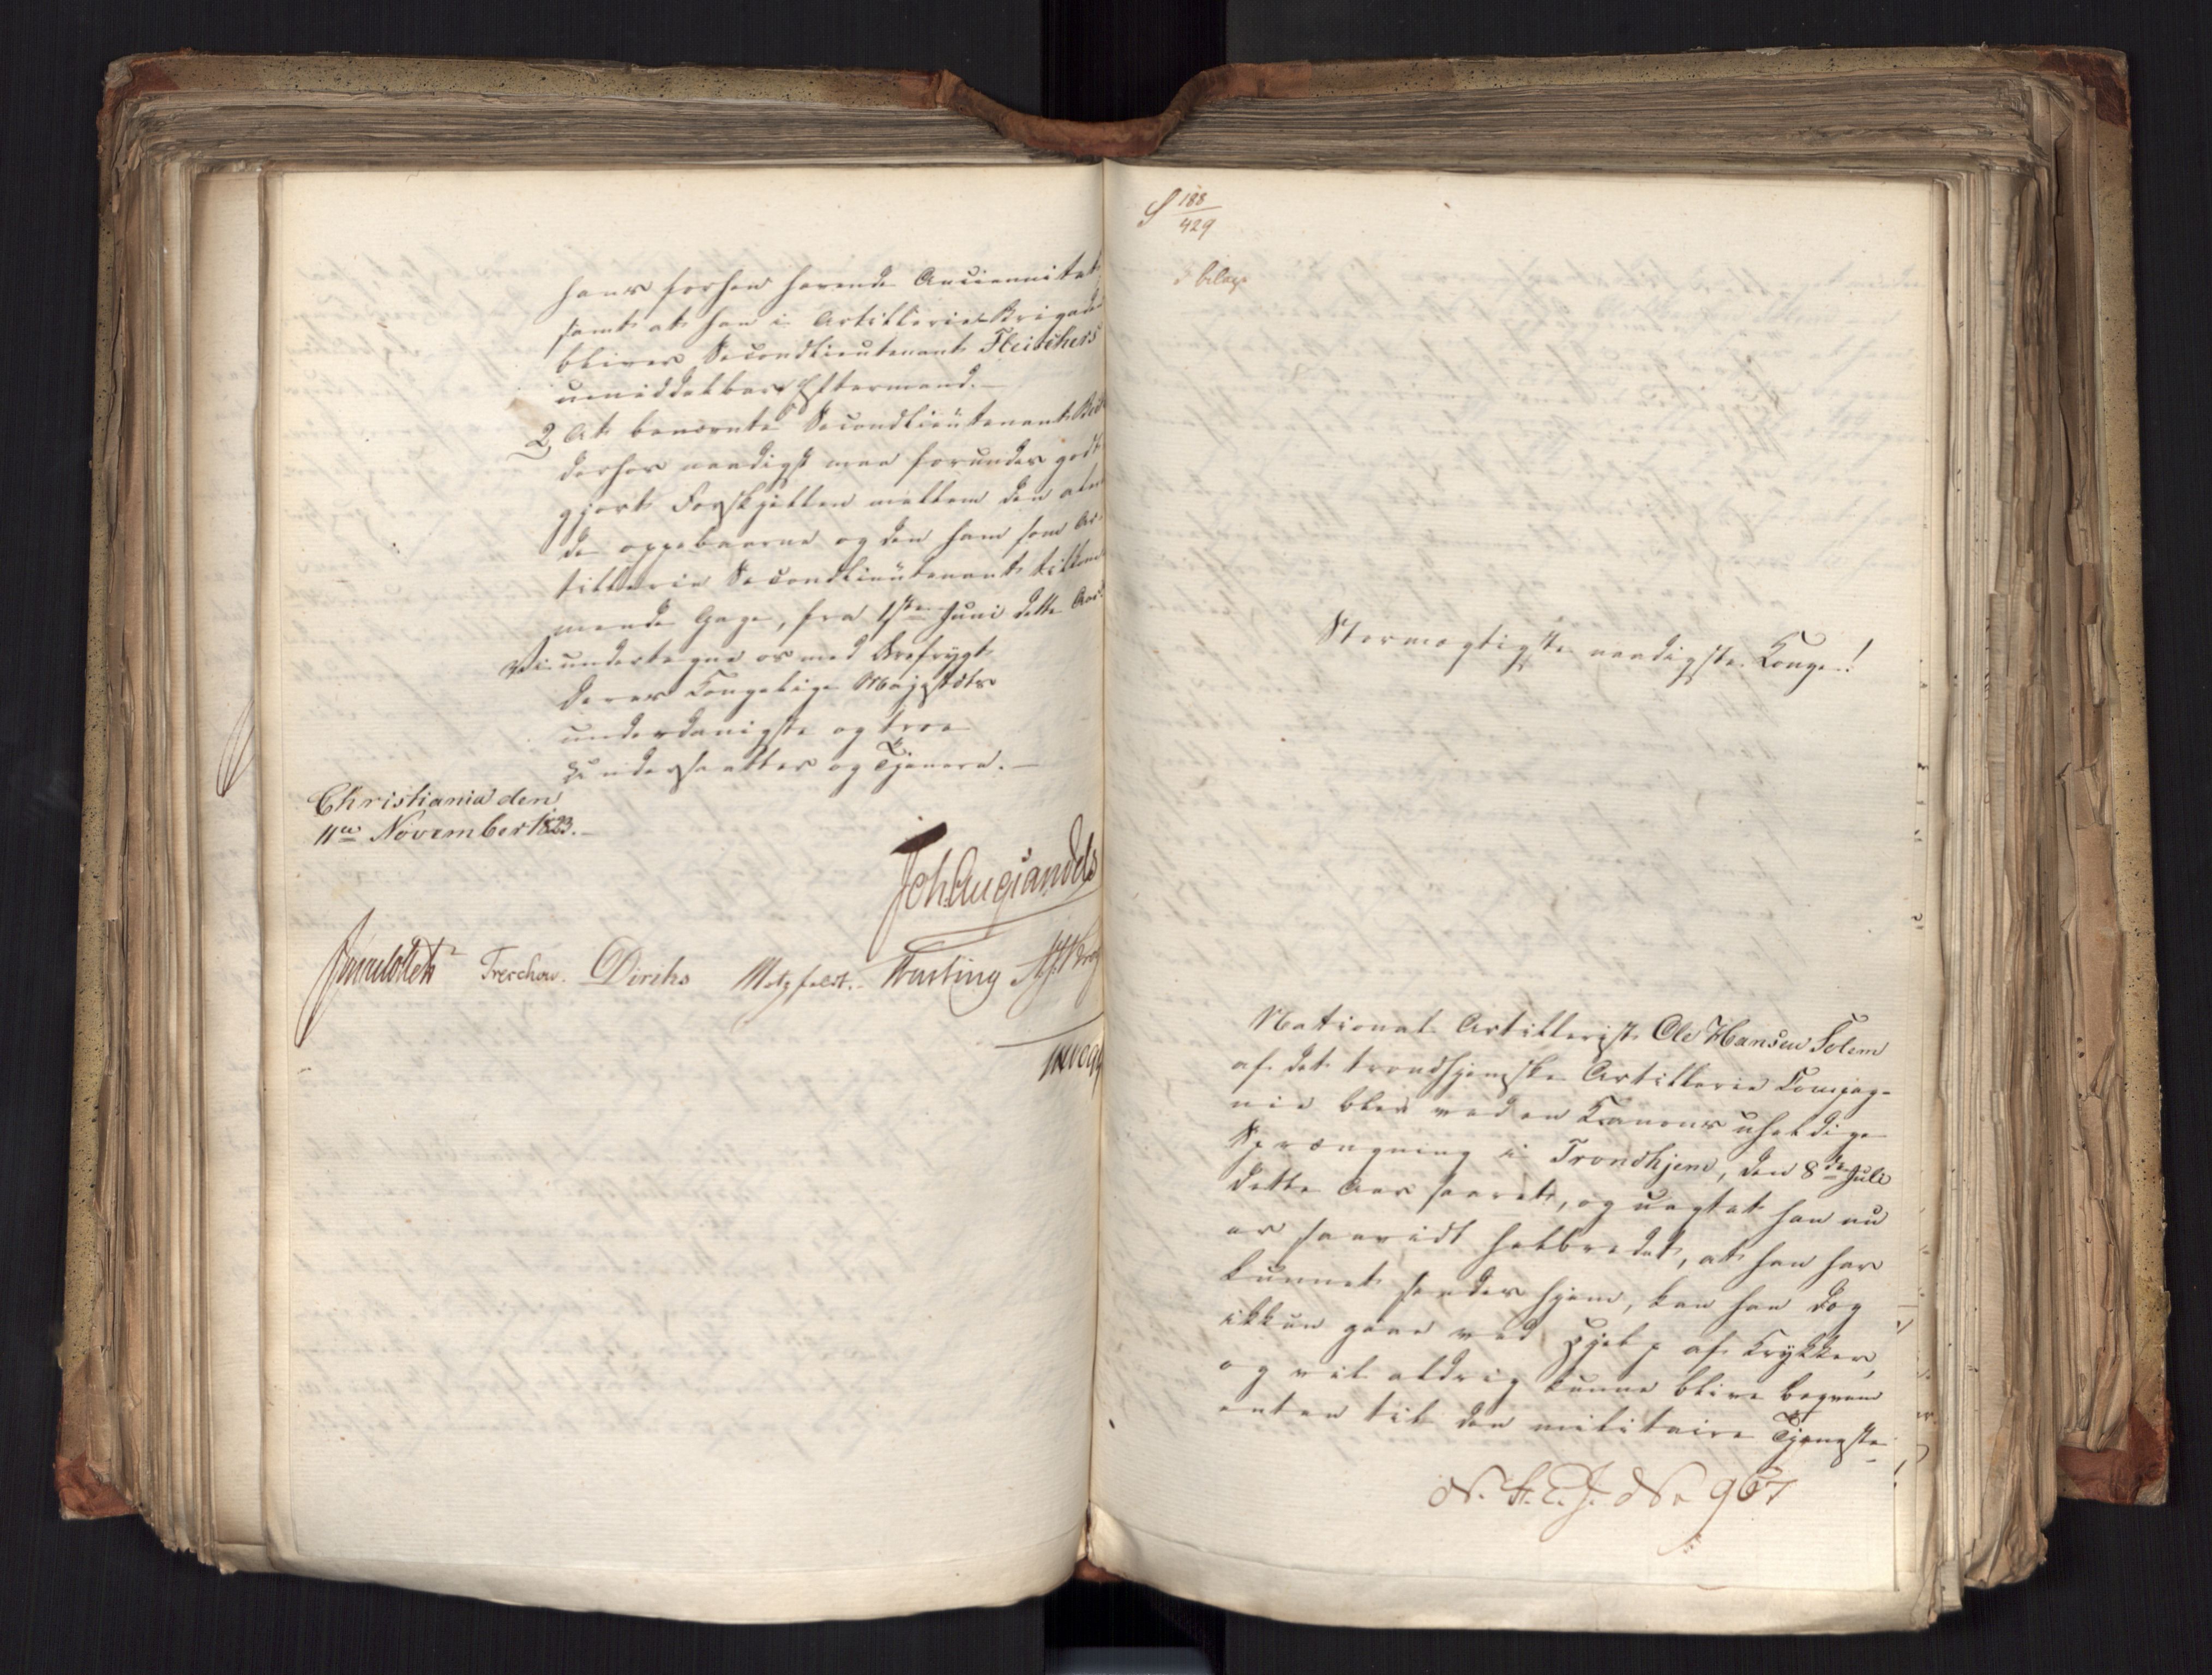 hans forhen havende Anciennitet
samt at han i Artillerie Brigaden
bliver Secondlieutenant Fleischers
umiddelbare Eftermand.—
2, At benævnte Secondlieutenant
derhos naadigst maa forundes godt
gjort Forskjellen mellem den
oppebaarne og den ham som Ar-
tillerie Secondlieutenant tilkom
mende Gage, fra 1ste Juni dette Aar.
Vi undertegne os med Ærefrygt
Deres Kongelige Majestæts
underdanigste og troe
Undersaatter og Tjenere.—
Christiania den
11te November 1823.—
Joh. Aug Sandels
Treschow. Diriks Motzfeldt. Fasting
S 188/429
bilag
Stormægtigste naadigste Konge!
National Artillerist Ole Hansen Solem
af det trondhjemske Artillerie Compag-
nie blev ved en Kanons uheldige
Sprængning i Trondhjem, den 8de Juli
dette Aar saaret, og uagtet han nu
er saavidt helbredet, at han har
kunnet sendes hjem, kan han dog
ikkun gaae ved Hjelp af Krykker,
og vil aldrig kunne blive beqvem
enten til den militaire Tjeneste
No 967